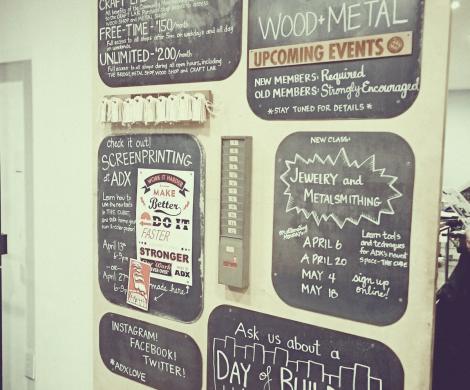 CRAFT LAB
FREE-TIME - $150/month
Full access to all shops after 5pm on weekdays and all day
on weekends.
UNLIMITED - $200/month
Full access to all shops during all open hours, including
THE BRIDGE, METAL SHOP, WOOD SHOP and CRAFT LAB.
WOOD + METAL
UPCOMING EVENTS
NEW MEMBERS: Required
OLD MEMBERS: Strongly Encouraged
*STAY TUNED FOR DETAILS*
check it out!
SCREENPRINTING
at ADX
Learn how
to use
in THE CUBE
and take home your
April 13th
6-9pm
-or-
April 27th
6-9
made here!
WORK IT HARDER
MAKE
Better
DO IT
FASTER
STRONGER
ADX
NEW CLASS:
JEWELRY and
METALSMITHING
APRIL 6
APRIL 20
MAY 4
MAY 18
Learn tools
and techniques
for ADX's newest
space - THE CUBE
sign up
online!
INSTAGRAM!
FACEBOOK!
TWITTER!
#ADXLOVE
Ask us about a
DAY of BUILD